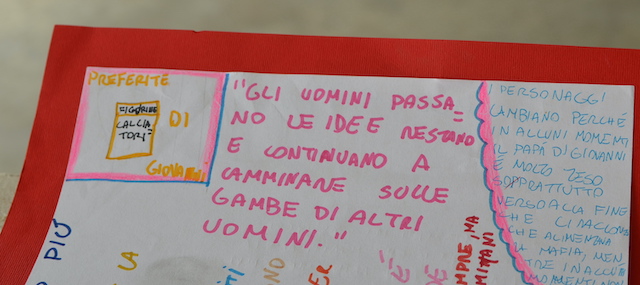 PREFERITE
FIGURINE
CALCIA=
TORI
DI
GIOVANNI
"GLI UOMINI PASSA=
NO LE IDEE RESTANO
E CONTINUANO A
CAMMINARE SULLE
GAMBE DI ALTRI
UOMINI."
I PERSONAGGI
CAMBIANO PERCHÉ
IN ALCUNI MOMENTI
IL PAPÀ DI GIOVANNI
È MOLTO TESO
SOPRATTUTTO
VERSO ALLA FINE
CHE
CHE ALIMENTAVA
LA MAFIA, MEN
TRE IN ALCUNI
MOMENTI NON
PIÙ